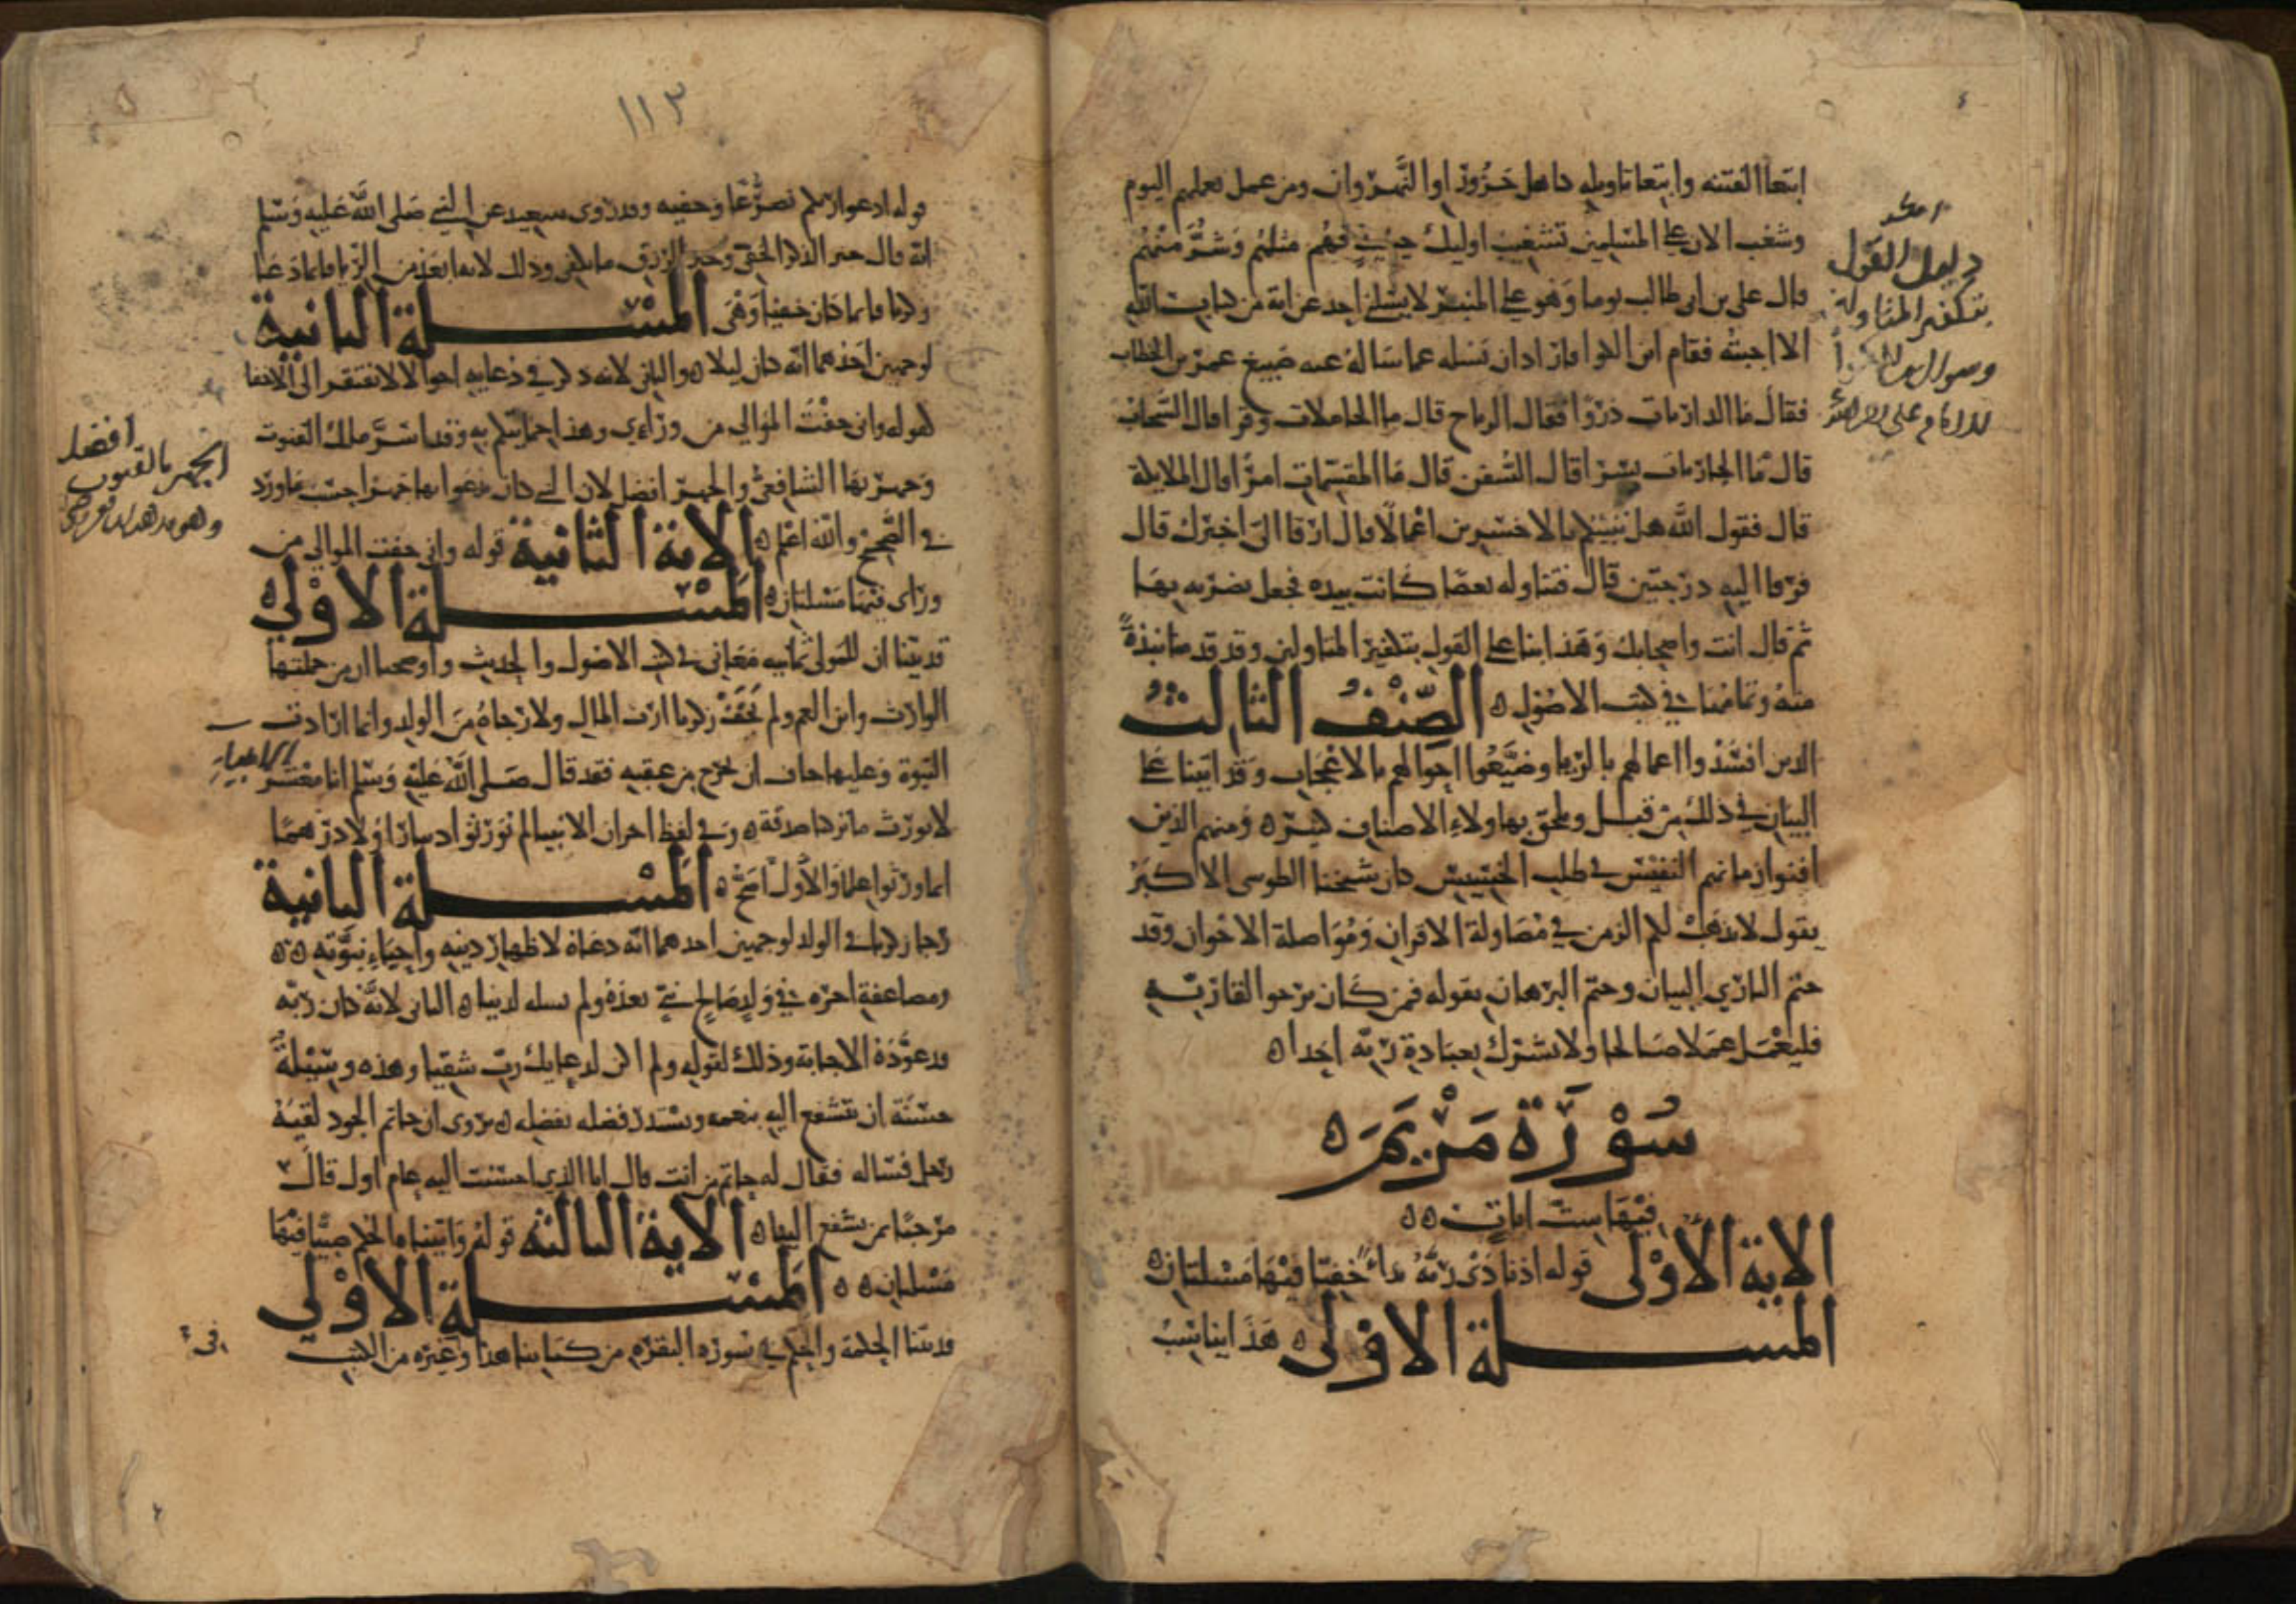 ابتغا الفتنه وابتغا تاويله كاهل حروراوا النهروان ومن عمل بعملهم اليوم
وشغب الان على المسلمين تشغيب اوليك حينئذ فهم مثلهم وشر منهم
قال علي بن ابي طالب يوما وهو على المنبر لا يسلني احد عن اية من كتاب الله
الا اجبته فقام ابن الكوا فاراد ان يسله عما سال عنه صبيغ عمر بن الخطاب
فقال ما الذاريات ذروا فقال الرياح قال ما الحاملات وقرا قال السحاب
قال فما الجاريات يسرا قال السفن قال فما المقسمات امرا قال الملايكة
قال فقول الله هل ننبئكم بالاخسرين اعمالا قال ارقا الي اخبرك قال
فرقا اليه درجتين قال فتناوله بعصا كانت بيده فجعل يضربه بها
ثم قال انت واصحابك وهذا بنا على القول بتكفير المتاولين وقد قدمنا نبذة
منه وتمامها في كتب الاصول ه الصنف الثالث
الذين افسدوا اعمالهم بالريا وضيعوا احوالهم بالاعجاب وقد اتينا على
البيان في ذلك من قبل ويلحق بهاولاء الاصناف كثير ه ومنهم الذين
افنوا زمانهم النفيس في طلب الخسيس كان شيخنا الطوسي الاكبر
يقول لا يذهب لكم الزمن في مصاولة الاقران ومواصلة الاخوان وقد
ختم الباري البيان وختم البرهان بقوله فمن كان يرجوا لقا ربه
فليعمل عملا صالحا ولا يشرك بعبادة ربه احدا ه
سورة مريم ه
فيها ست ايات ه ه
الاية الاولى قوله اذ نادى ربه نداء خفيا فيها مسلتان ه
المسلة الاولى ه هذا يناسب
دليل القول
بتكفير المتاولة
وسوال ابن الكوا
للامام علي
١١٣
قوله ادعوا ربكم تضرعا وخفيه وقد روى سعيد عن النبي صلى الله عليه وسلم
انه قال خير الذكر الخفي وخير الرزق ما يكفي وذلك لانه ابعد من الريا فاما دعا
زكريا فانما كان خفيا وهي المسلة الثانية
لوجهين احدهما انه كان ليلا ه والثاني لانه ذكر في دعايه احوالا لا تفتقر الى الاخفا
كقوله واني خفت الموالي من وراءي وهذا مما يتكلم به وقد اسر ملك القنوت
وجهر بها الشافعي والجهر افضل لان النبي كان يدعوا بها جهرا حسب ما ورد
في الصحيح والله اعلم ه الاية الثانية قوله واني خفت الموالي من
وراي فيها مسلتان ه المسلة الاولى ه
قد بينا ان للمولى ثمانية معاني في كتب الاصول والحديث واوضحنا ان من جملتها
الوارث وابن العم ولم يخف زكريا ارث المال ولا رجاه من الولد وانما اراد ارث
النبوة وعليها خاف ان تخرج من عقبه فقد قال صلى الله عليه وسلم انا معشر
الانبياء
لا نورث ما تركنا صدقة ه وفي لفظ اخر ان الانبيا لم تورثوا دينارا ولا درهما
انما ورثوا علما والاول اصح ه المسلة الثانية
رجا زكريا في الولد لوجهين احدهما انه دعاه لاظهار دينه واحياء نبوته ه ه
ومضاعفة اجره في ولد صالح نبي بعده ولم يسله لدنيا ه الثاني لانه كان ربه
قد عوده الاجابة وذلك لقوله ولم اكن لدعايك رب شقيا وهذه وسيلة
حسنة ان يتشفع اليه بنعمه ويستدر فضله بفضله ه يروى ان حاتم الجود لقيه
رجل فساله فقال له حاتم من انت قال انا الذي احسنت اليه عام اول قال
مرحبا بمن تشفع الينا بنا ه الاية الثالثه قوله واتيناه الحكم صبيا فيها
مسلتان ه ه المسلة الاولى
قد بينا الحكمة والحكم في سورة البقره من كتابنا هذا وغيره من الكتب
افضل
الجهر بالقنوت
وهو مذهب الشافعي
في